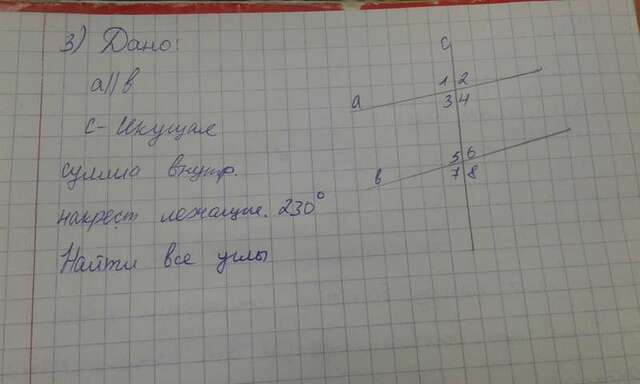 3) Дано:
a||b
c - секущая
сумма внутр.
накрест лежащие. 230°
Найти все углы
c
1 2
a
3 4
5 6
b
7 8